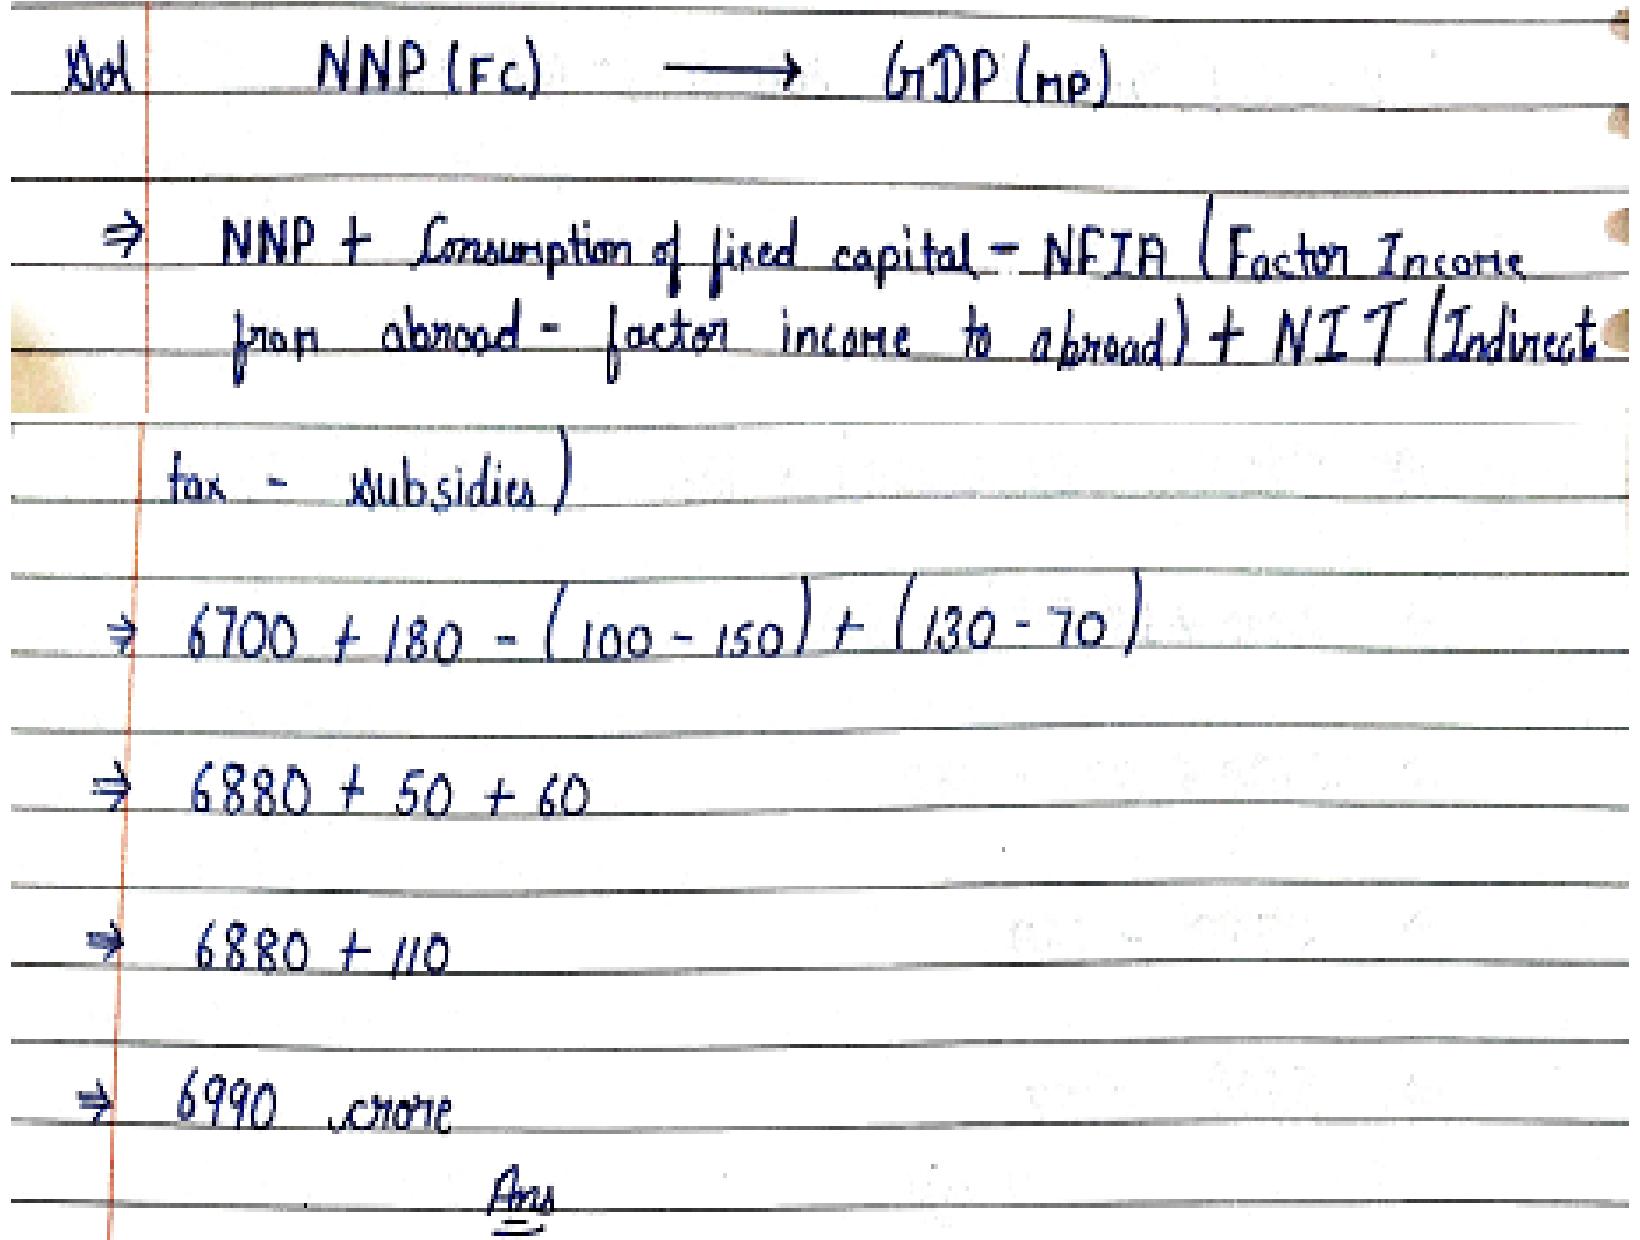 Sol NNP (FC) → GDP (MP)
⇒ NNP + Consumption of fixed capital - NFIA (Factor Income
from abroad - factor income to abroad) + NIT (Indirect
tax - subsidies)
⇒ 6700 + 180 - (100 - 150) + (130 - 70)
⇒ 6880 + 50 + 60
⇒ 6880 + 110
⇒ 6990 crore
Ans